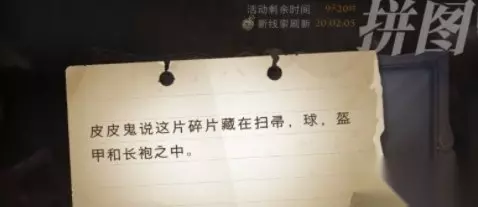 活动剩余时间 9天20时
新线索刷新 20:02:05
拼图
皮皮鬼说这片碎片藏在扫帚，球，盔
甲和长袍之中。